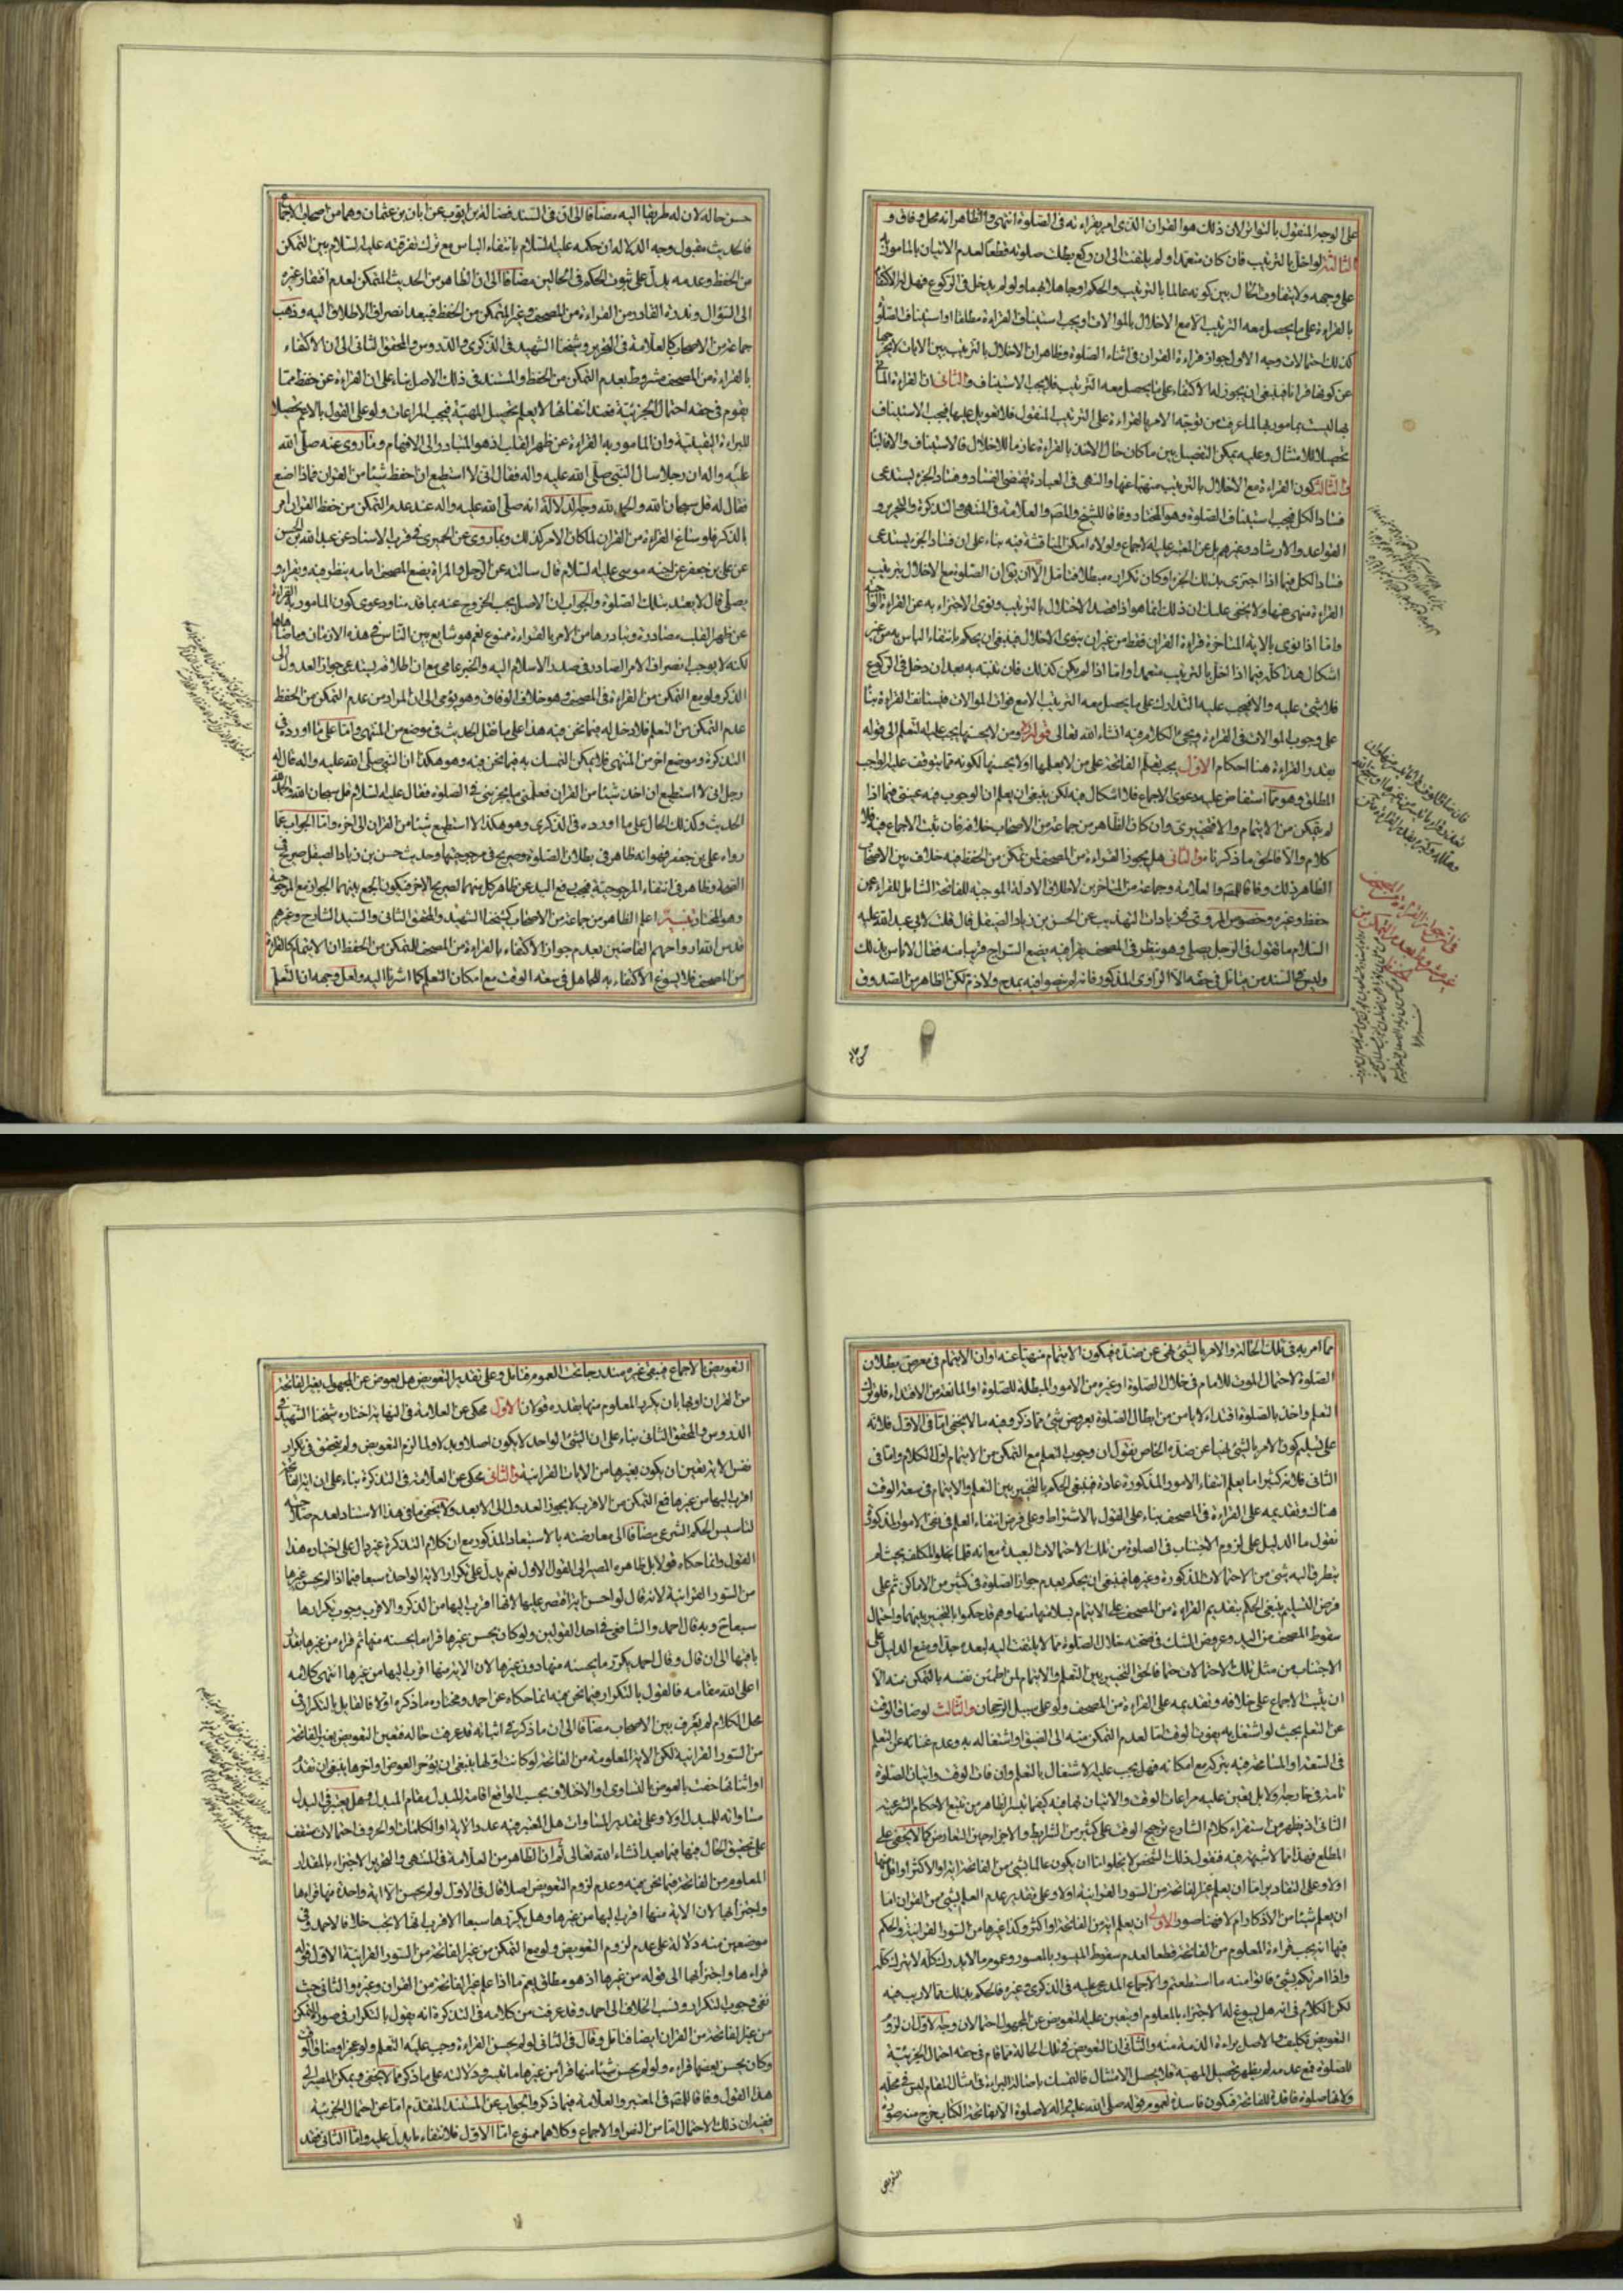 على الوجه المنقول بالتواتر لان ذلك هو القران الذى امر بقراءته فى الصلوة انتهى والظاهر انه محل وفاق و
الثالثة لو اخل بالترتيب فان كان متعمدا ولم يلتفت الى ان ركع بطلت صلوته قطعا لعدم الاتيان بالمامور به
على وجهه ولا يتفاوت الحال بين كونه عالما بالترتيب والحكم او جاهلا بهما ولو لم يدخل فى الركوع فهل له الاكتفاء
بالقراءة على ما يحصل معه الترتيب الا مع الاخلال بالموالاة ويجب استيناف القراءة مطلقا او استيناف الصلوة
كذلك احتمالات وجه الاول جواز قراءة القران فى اثناء الصلوة وظاهر ان الاخلال بالترتيب بين الايات لا يخرجها
عن كونها قرانا فينبغى ان يجوز له الاكتفاء على ما يحصل معه الترتيب فلا يجب الاستيناف والثانى ان القراءة
بها ليست بمامور بها لما عرفت من توجه الامر بالقراءة على الترتيب المنقول فلا تعويل عليها فيجب الاستيناف
تحصيلا للامتثال وعليه يمكن التفصيل بين ما كان حال الاخذ بالقراءة عازما للاخلال فالاستيناف والا فالبناء
والثالث كون القراءة مع الاخلال بالترتيب منهيا عنها والنهى فى العبادة يقتضى الفساد وفساد الجزء يستدعى
فساد الكل فيجب استيناف الصلوة وهو المختار وفاقا للشيخ والمص والعلامة فى المنتهى والتذكرة والتحرير و
القواعد والارشاد وغيرهم بل عن المعتبر عليه الاجماع ولولاه امكن المناقشة فيه بناء على ان فساد الجزء يستدعى
فساد الكل فيما اذا اجترى بذلك الجزء او كان تكراره مبطلا فتامل الا ان يقال ان الصلوة مع الاخلال بترتيب
القراءة منهى عنها ولا يخفى عليك ان ذلك انما هو اذا قصد الاخلال بالترتيب ونوى الاجتزاء به عن القراءة
واما اذا نوى بالاية المتاخرة قراءة القران فقط من غير ان ينوى الاخلال فينبغى ان يحكم بانتفاء الباس به من غير
اشكال هذا كله فيما اذا اخل بالترتيب متعمدا واما اذا لم يكن كذلك فان تنبه به بعد ان دخل فى الركوع
فلا شىء عليه والا فيجب عليه التدارك على ما يحصل معه الترتيب الا مع فوات الموالات فيستانف القراءة بناء
على وجوب الموالات فى القراءة ويجىء الكلام فيه انشاء الله تعالى قوله ومن لا يحسنها يجب عليه التعلم الى قوله
بقدر القراءة هنا احكام الاول يجب تعلم الفاتحة على من لا يعلمها او لا يحسنها لكونه مما يتوقف عليه الواجب
المطلق وهو مما استفاض عليه دعوى الاجماع فلا اشكال فيه لكن ينبغى ان يعلم ان الوجوب فيه عينى فيما اذا
لم يتمكن من الايتمام والا فتخييرى وان كان الظاهر من جماعة من الاصحاب خلافه فان ثبت الاجماع فيه فلا
كلام والا فالحق ما ذكرنا والثانى هل يجوز القراءة من المصحف لمن تمكن من الحفظ فيه خلاف بين الاصحاب
الظاهر ذلك وفاقا للمص والعلامة وجماعة من المتاخرين لاطلاق الادلة الموجبة للفاتحة الشامل للقراءة عن
حفظ وغيره وخصوص المروى فى زيادات التهذيب عن الحسن بن زياد الصيقل قال قلت لابى عبد الله عليه
السلام ما تقول فى الرجل يصلى وهو ينظر فى المصحف يقرا فيه يضع السراج قريبا منه فقال لا باس بذلك
وليس فى السند من يتامل فى حقه الا الراوى المذكور فانه لم ينصوا فيه بمدح ولا ذم لكن الظاهر من الصدوق
حسن حاله لان له طريقا اليه مضافا الى ان فى السند فضالة بن ايوب عن ابان بن عثمان وهما من اصحاب الاجماع
فالحديث مقبول وجه الدلالة ان حكمه عليه السلام بانتفاء الباس مع ترك تفرقته عليه السلام بين التمكن
من الحفظ وعدمه يدل على ثبوت الحكم فى الحالين مضافا الى ان الظاهر من الحديث المتمكن لعدم افتقار غيره
الى السؤال وندرة القادر من القراءة من المصحف وغير المتمكن من الحفظ فيبعد انصراف الاطلاق اليه وذهب
جماعة من الاصحاب كالعلامة فى التحرير وشيخنا الشهيد فى الذكرى والدروس والمحقق الثانى الى ان الاكتفاء
بالقراءة من المصحف مشروط بعدم التمكن من الحفظ والمستند فى ذلك الاصل بناء على ان القراءة عن حفظ مما
يقوم فى حقه احتمال الجزئية فعند انتفائها لا يعلم تحصيل المهية فيجب المراعات ولو على القول بالاعم تحصيلا
للبراءة اليقينية وان المامور به القراءة عن ظهر القلب اذ هو المتبادر الى الافهام وما روى عنه صلى الله
عليه واله ان رجلا سال النبى صلى الله عليه واله فقال انى لا استطيع ان احفظ شيئا من القران فماذا اصنع
فقال له قل سبحان الله والحمد لله وجه الدلالة انه صلى الله عليه واله عند عدم التمكن من حفظ القران امر
بالذكر فلو ساغ القراءة من القران لما كان الامر كذلك وما روى عن الحميرى فى قرب الاسناد عن عبد الله بن الحسن
عن على بن جعفر عن اخيه موسى عليه السلام قال سالته عن الرجل والمراة يضع المصحف امامه ينظر فيه ويقراء و
يصلى قال لا يعتد بتلك الصلوة والجواب ان الاصل يجب الخروج عنه بما قدمنا ودعوى كون المامور به القراءة
عن ظهر القلب مصادرة وتبادرها من الامر بالقراءة ممنوع نعم هو شايع بين الناس فى هذه الازمان وما ضاهاها
لكنه لا يوجب انصراف الامر الصادر فى صدر الاسلام اليه والخبر عامى مع ان اطلاقه يستدعى جواز العدول الى
الذكر ولو مع التمكن من القراءة فى المصحف وهو خلاف الوفاق وهو يؤمى الى ان المراد من عدم التمكن من الحفظ
عدم التمكن من التعلم فلا دخل له فيما نحن فيه هذا على ما نقل الحديث فى موضع من المنتهى واما على ما اورده فى
التذكرة وموضع اخر من المنتهى فلا يمكن التمسك به فيما نحن فيه وهو هكذا ان النبى صلى الله عليه واله قال له
رجل انى لا استطيع ان اخذ شيئا من القران فعلمنى ما يجزينى فى الصلوة فقال عليه السلام قل سبحان الله
الحديث وكذلك الحال على ما اورده فى الذكرى وهو هكذا لا استطيع شيئا من القران الى اخره واما الجواب عما
رواه على بن جعفر فهو انه ظاهر فى بطلان الصلوة وصريح فى مرجوحيتها وحديث حسن بن زياد الصيقل صريح فى
الصحة وظاهر فى انتفاء المرجوحية فيجب رفع اليد عن ظاهر كل منهما لصريح الاخر فيكون الجمع بينهما الجواز مع المرجوحية
وهو المختار تنبيه اعلم الظاهر من جماعة من الاصحاب كشيخنا الشهيد والمحقق الثانى والسيد الشارح وغيرهم
قدس الله ارواحهم القاضين بعدم جواز الاكتفاء بالقراءة من المصحف للتمكن من الحفظ ان الايتمام كالقراءة
من المصحف فلا يسوغ الاكتفاء به للجاهل فى سعة الوقت مع امكان التعلم كما اشرنا اليه ولعل وجهه ان التعلم
مما امر به فى تلك الحالة والامر بالشىء نهى عن ضده فيكون الايتمام منهيا عنه او ان الايتمام فى معرض بطلان
الصلوة لاحتمال الموت للامام فى خلال الصلوة او غيره من الامور المبطلة للصلوة او المانعة من الاقتداء فلو ترك
التعلم واخذ بالصلوة اقتداء لا يامن من ابطال الصلوة بعروض شىء مما ذكر وفيه ما لا يخفى اما فى الاول فلانه
على تسليم كون الامر بالشىء نهيا عن ضده الخاص نقول ان وجوب التعلم مع التمكن من الايتمام اول الكلام واما فى
الثانى فلانه كثيرا ما يعلم انتفاء الامور المذكورة عادة فينبغى الحكم بالتخيير بين التعلم والايتمام فى سعة الوقت
هنالك وتقديمه على القراءة فى المصحف بناء على القول بالاشتراط وعلى فرض انتفاء العلم فى نفى الامور المذكورة
نقول ما الدليل على لزوم الاجتناب فى الصلوة من تلك الاحتمالات البعيدة مع انه قلما يخلو المكلف بحيث لم
يتطرق اليه شىء من الاحتمالات المذكورة وغيرها فينبغى ان يحكم بعدم جواز الصلوة فى كثير من الاماكن ثم على
فرض التسليم ينبغى الحكم بتقديم القراءة من المصحف على الايتمام لسلامتها منها وهم قد حكموا بالتخيير بينهما واحتمال
سقوط المصحف من اليد وعروض الشك فى صحته خلال الصلوة مما لا يلتفت اليه لبعده جدا ومنع الدليل على
الاجتناب من مثل تلك الاحتمالات حتما فالحق التخيير بين التعلم والايتمام لمن اطمئن نفسه بالتمكن منه الا
ان يثبت الاجماع على خلافه وتقديمه على القراءة من المصحف ولو على سبيل الرجحان والثالث لو ضاق الوقت
عن التعلم بحيث لو اشتغل به يفوت الوقت اما لعدم التمكن منه الى الضيق او اشتغاله به وعدم غنائه عن التعلم
فى السعة او المسامحة فيه بتركه مع امكانه فهل يجب عليه الاشتغال بالتعلم وان فات الوقت واتيان الصلوة
تامة فى خارجه او لا بل يتعين عليه مراعات الوقت والاتيان بها فيه كيفما تيسر الظاهر من تتبع الاحكام الشرعية
الثانى اذ يظهر من استقراء كلام الشارع ترجيح الوقت على كثير من الشرايط والاجزاء حين التعارض كما لا يخفى على
المطلع فهذا مما لا شبهة فيه فنقول ذلك الشخص لا يخلو اما ان يكون عالما بشىء من الفاتحة اية او اكثر او اقل منها
او لا وعلى التقادير اما ان يعلم غير الفاتحة من السور القرانية او لا وعلى تقدير عدم العلم بشىء من القران اما
ان يعلم شيئا من الاذكار ام لا فهنا صور الاولى ان يعلم اية من الفاتحة او اكثر وكذا غيرها من السور القرانية والحكم
فيها انه يجب قراءة المعلوم من الفاتحة قطعا لعدم سقوط الميسور بالمعسور وعموم ما لا يدرك كله لا يترك كله
واذا امرتكم بشىء فاتوا منه ما استطعتم والاجماع المدعى عليه فى الذكرى وغيره فالحكم بذلك مما لا ريب فيه
لكن الكلام فى انه هل يسوغ له الاجتزاء بالمعلوم او يتعين عليه التعويض عن المجهول احتمالان وجه الاول ان لزوم
التعويض تكليف والاصل براءة الذمة منه والثانى ان التعويض فى تلك الحالة مما قام فى حقه احتمال الجزئية
للصلوة فمع عدمه لم يظهر تحصيل المهية فلا يحصل الامتثال فالتمسك باصالة البراءة فى امثال المقام ليس فى محله
ولانها صلوة فاقدة للفاتحة فيكون فاسدة لعموم قوله صلى الله عليه واله لا صلوة الا بفاتحة الكتاب خرج منه صورة
التعويض
التعويض بالاجماع فبقى غيره مندرجا تحت العموم فتامل وعلى تقدير التعويض هل يعوض عن المجهول بغير الفاتحة
من القران او بها بان يكرر المعلوم منها بقدره قولان الاول محكى عن العلامة فى النهاية اختاره شيخنا الشهيد فى
الدروس والمحقق الثانى بناء على ان الشىء الواحد لا يكون اصلا وبدلا ولما لزم التعويض ولم يتحقق فى تكرار
نفس الاية تعين ان يكون بغيرها من الايات القرانية والثانى محكى عن العلامة فى التذكرة بناء على ان اية الفاتحة
اقرب اليها من غيرها فمع التمكن من الاقرب لا يجوز العدول الى الابعد ولا يخفى ما فى هذا الاستناد لعدم صلاحيته
لتاسيس الحكم الشرعى مضافا الى معارضته بالاستبعاد المذكور مع ان كلام التذكرة غير دال على اختياره هذا
القول وانما حكاه قولا بل ظاهره المصير الى القول الاول نعم يدل على تكرار الاية الواحدة سبعا فيما اذا لم يحسن غيرها
من السور القرانية لانه قال لو احسن اية اقتصر عليها لانها اقرب اليها من الذكر والاقرب وجوب تكرارها
سبعا وبه قال احمد والشافعى فى احد القولين ولو كان يحسن غيرها قرا ما يحسنه منها ثم قراء من غيرها بقدر
باقيها الى ان قال وقال احمد يكرر ما يحسنه منها دون غيرها لان الاية منها اقرب اليها من غيرها انتهى كلامه
اعلى الله مقامه فالقول بالتكرار فيما نحن فيه انما حكاه عن احمد ومختاره ما ذكره اولا فالقايل بالتكرار فى
محل الكلام لم يعرف بين الاصحاب مضافا الى ان ما ذكر فى اثباته قد عرفت حاله فتعين التعويض بغير الفاتحة
من السور القرانية لكن الاية المعلومة من الفاتحة لو كانت اولها ينبغى ان يؤخر العوض او اخرها ينبغى ان تقدم
مساواته للمبدل او لا وعلى تقدير المساوات هل المعتبر فيه عدد الاية او الكلمات او الحروف احتمالات ستقف
على تحقيق الحال فيها فيما بعد انشاء الله تعالى ثم ان الظاهر من العلامة فى المنتهى والتحرير الاجتزاء بالمقدار
المعلوم من الفاتحة فيما نحن فيه وعدم لزوم التعويض اصلا قال فى الاول لو لم يحسن الا اية واحدة منها قراها
واجتزا بها لان الاية منها اقرب اليها من غيرها وهل يكررها سبعا الاقرب انها لا يجب خلافا لاحمد وفى
موضعين منه دلالة على عدم لزوم التعويض ولو مع التمكن من غير الفاتحة من السور القرانية الاول قوله
قراءها واجتزا بها الى قوله من غيرها اذ هو مطلق يعم ما اذا علم غير الفاتحة من القران وغيره والثانى حيث
نفى وجوب التكرار ونسب الخلاف الى احمد وقد عرفت من كلامه فى التذكرة انه يقول بالتكرار فى صورة التمكن
من غير الفاتحة من القران ايضا فتامل وقال فى الثانى لو لم يحسن القراءة وجب عليه التعلم ولو عجز او ضاق الوقت
وكان يحسن بعضها قراءه ولو لم يحسن شيئا منها قرا من غيرها ما تيسر ودلالته على ما ذكر مما لا يخفى ويمكن المصير الى
هذا القول وفاقا للمص فى المعتبر والعلامة فيما ذكر والجواب عن المستند المتقدم اما عن احتمال الجزئية
فبان ذلك الاحتمال اما من النص او الاجماع وكلاهما ممنوع اما الاول فلانتفاء ما يدل عليه واما الثانى فعند